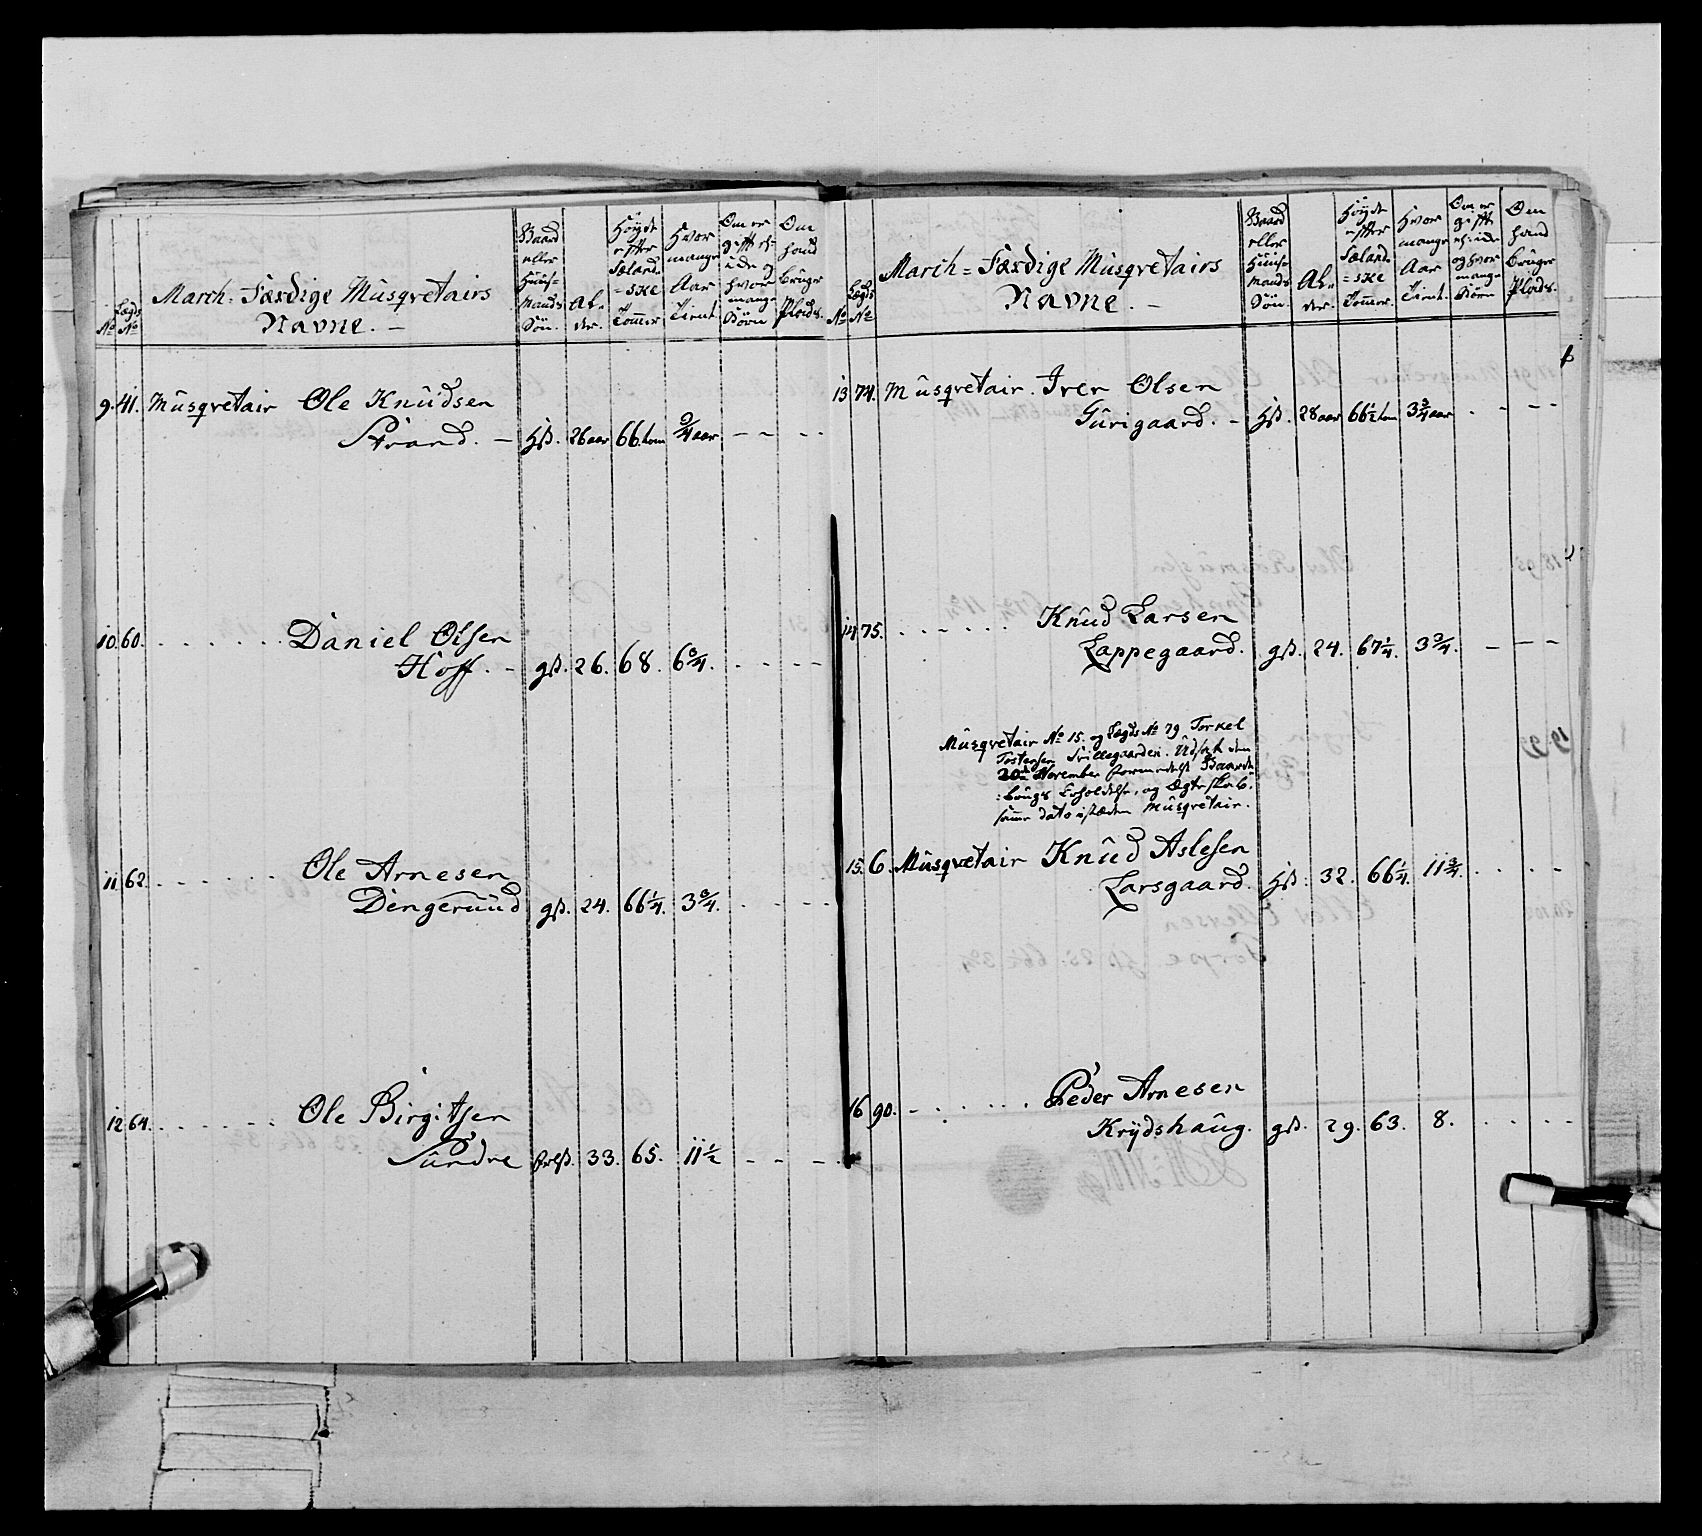 No Legds No
March-Færdige Musqvetairs
Navne. –
Gaard eller Huus-Mands Søn.
Al-der.
Høyde efter Sælandske Tommer
Hvor mange Aar Tient
Om er gift eller hvor mange Børn
Om hand bruger Plads.
9. 41. Musqvetair Ole Knudsen
Strand. – hß. 26 aar 66 tom ¾ aar – – – –
10. 60. . . . . . . Daniel Olsen
Hoff. – gß. 26. 68. 6¾. – – – –
11. 62. . . . . . . Ole Arnesen
Dengeruud gß. 24. 66¼. 3¾. – – – –
12. 64. . . . . . . Ole Birgitsen
Sundre 33. 65. 11½ – – –
No Legds No
March=Færdige Musqvetairs
Navne. –
Gaard eller Huus-Mands Søn
Al-der.
Høyde efter Sælandske Tommer.
Hvor mange Aar Tient.
Om er gift og hvor mange Børn
Om hand bruger Plads.
13. 74. Musqvetair. Iver Olsen
Gurigaard. – hß. 28 aar 66½ tom 3¾ aar . – – –
14. 75. . . . . . . Knud Larsen
Lappegaard. gß. 24. 67¼. 3¾. – – –
Musqvetair No 15. og Legds No 79 Torkel
Tostensen Trillegaarden. Udsat den
20de November formedelst Gaarde
brugs Erholdelse, og Ægteskab.
samme dato istæden Musqvetair.
15. 6. Musqvetair Knud Aslesen
Larsgaard. hß. 32. 66¼. 11¾. . . . .
16. 90. . . . . . . Peder Arnesen
Krydshaug. gß. 29. 63. 8. . . . .